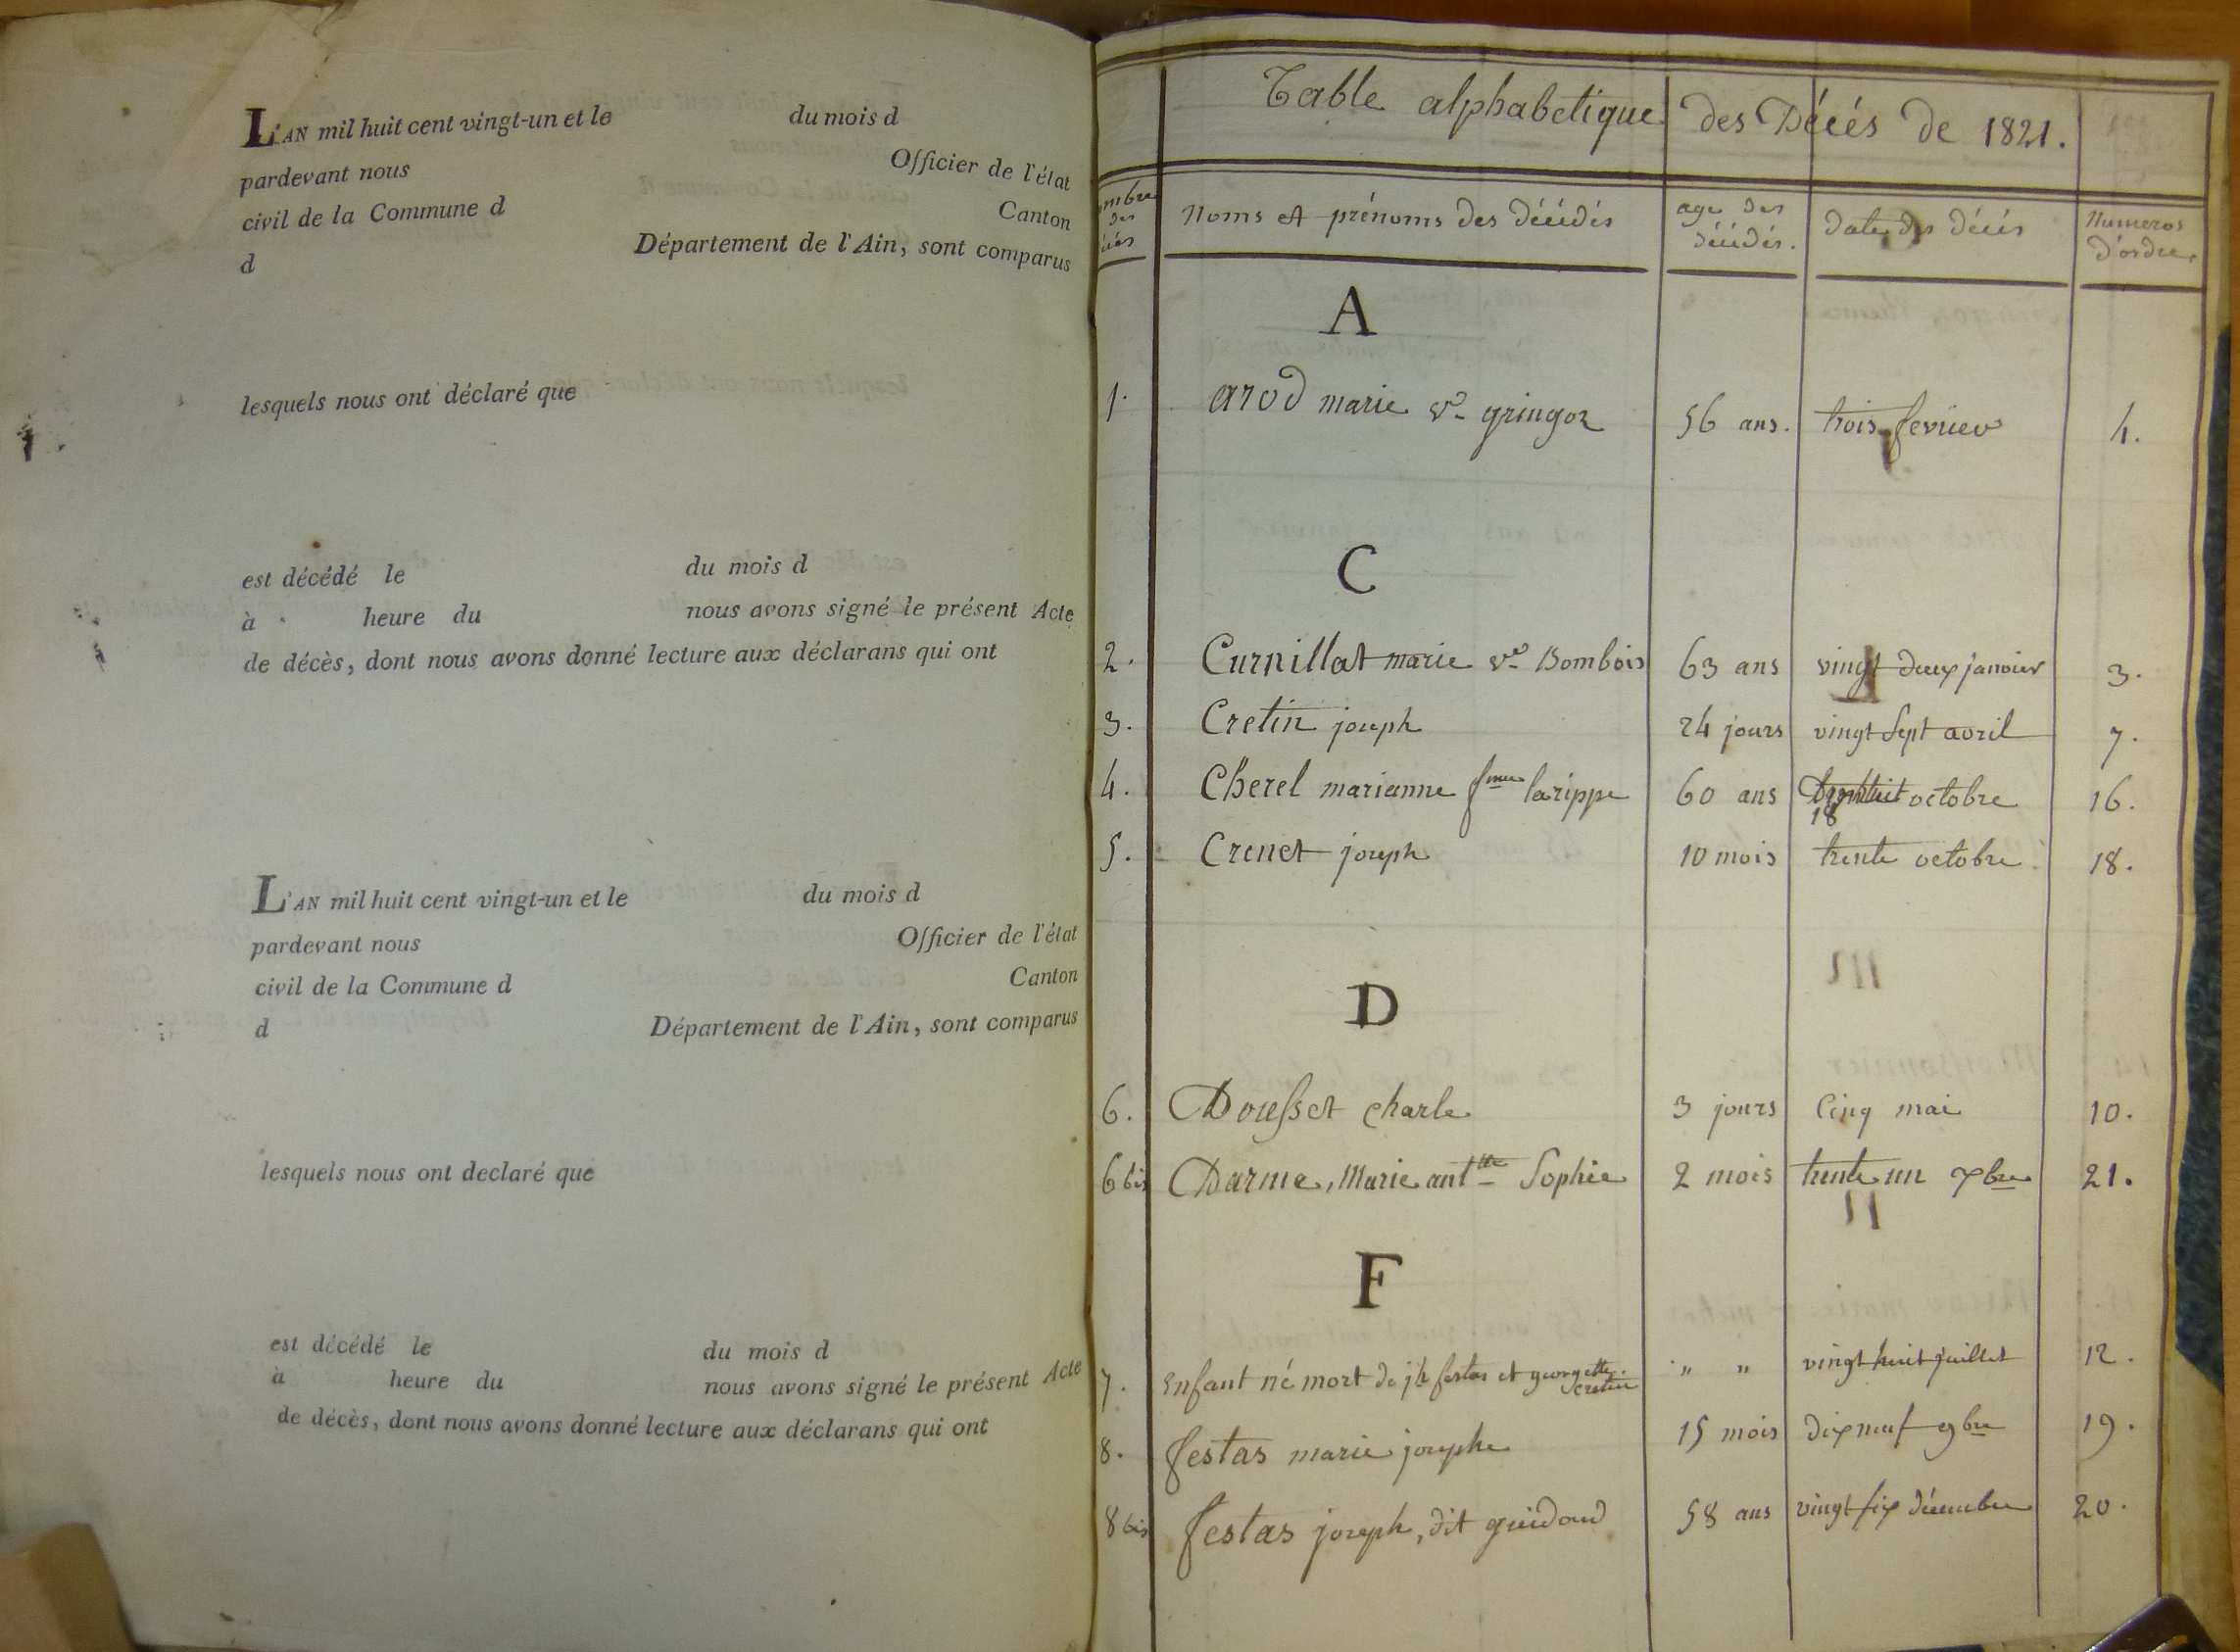 L'AN mil huit cent vingt-un et le du mois d
pardevant nous Officier de l'état
civil de la Commune d Canton
d Département de l'Ain, sont comparus
lesquels nous ont déclaré que
est décédé le du mois d
à heure du nous avons signé le présent Acte
de décès, dont nous avons donné lecture aux déclarans qui ont
L'AN mil huit cent vingt-un et le du mois d
pardevant nous Officier de l'état
civil de la Commune d Canton
d Département de l'Ain, sont comparus
lesquels nous ont declaré que
est décédé le du mois d
à heure du nous avons signé le présent Acte
de décès, dont nous avons donné lecture aux déclarans qui ont
Table alphabetique des Décés de 1821.
ombre des décés noms et prénoms des décédés age des décédés. date des décés Numeros d'ordre.
A
1. arod marie ve gringoz 56 ans. trois fevrier 4.
C
2. Curnillat marie ve Bombois 63 ans vingt deux janvier 3.
3. Cretin joseph 24 jours vingt sept avril 7.
4. Cherel marianne fme larippe 60 ans 18 octobre 16.
5. Crenet joseph 10 mois trente octobre 18.
D
6. Dousset charle 3 jours cinq mai 10.
6 bis Darme, Marie anttte Sophie 2 mois trente un Xbre 21.
F
7. enfant né mort de jh festas et georgette cretin " " vingt huit juillet 12.
8. festas marie josephe 15 mois dix neuf 9bre 19.
8 bis festas joseph, dit guidoud 58 ans vingt six décembre 20.